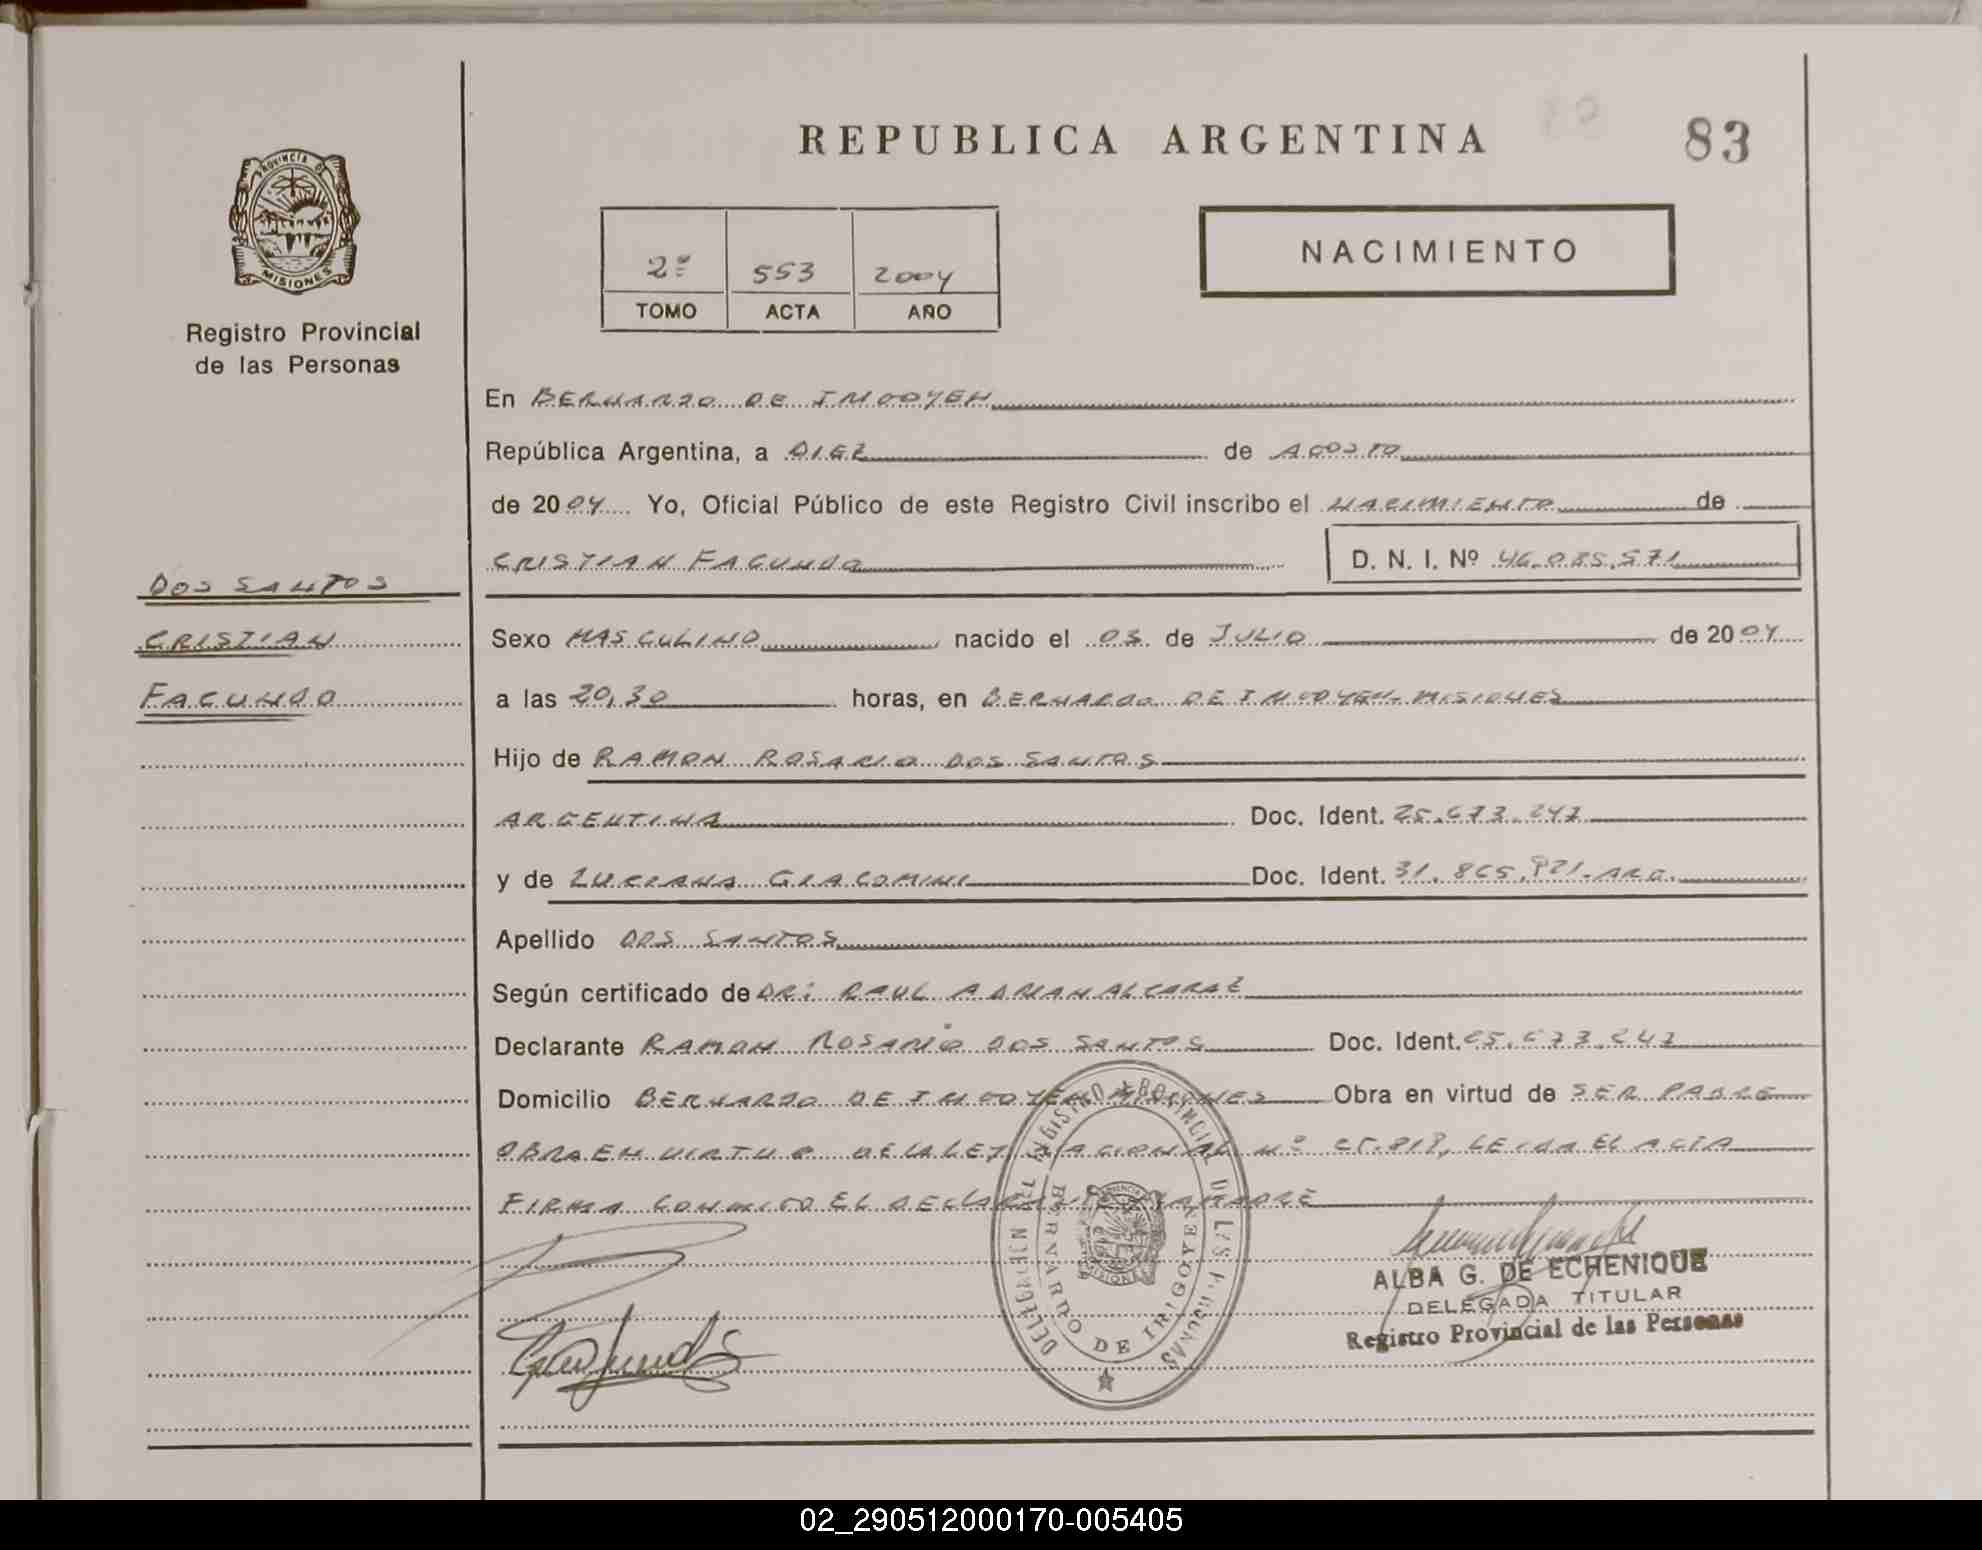 REPUBLICA ARGENTINA
83
PROVINCIA DE
MISIONES
Registro Provincial
de las Personas
2º 553 2004
TOMO ACTA AÑO
NACIMIENTO
En BERNARDO DE IRIGOYEN
República Argentina, a DIEZ de AGOSTO
de 2004 Yo, Oficial Público de este Registro Civil inscribo el NACIMIENTO de
CRISTIAN FACUNDO D. N. I. Nº 46.085.571
DOS SANTOS
CRISTIAN
FACUNDO
Sexo MASCULINO nacido el 03 de JULIO de 2004
a las 20,30 horas, en BERNARDO DE IRIGOYEN-MISIONES
Hijo de RAMON ROSARIO DOS SANTOS
ARGENTINA Doc. Ident. 25.673.247
y de LUCIANA GIACOMINI Doc. Ident. 31.865.821-ARG.
Apellido DOS SANTOS
Según certificado de DR: RAUL ADRIAN ALCARAZ
Declarante RAMON ROSARIO DOS SANTOS Doc. Ident. 25.673.247
Domicilio BERNARDO DE IRIGOYEN MISIONES Obra en virtud de SER PADRE
OBRA EN VIRTUD DE LA LEY NACIONAL Nº 25.818, LEIDA EL ACTA
FIRMA CONMIGO EL DECLARANTE Y LA MADRE
DELEGACION DEL REGISTRO PROVINCIAL DE LAS PERSONAS
BERNARDO DE IRIGOYEN
ALBA G. DE ECHENIQUE
DELEGADA TITULAR
Registro Provincial de las Personas
02_290512000170-005405